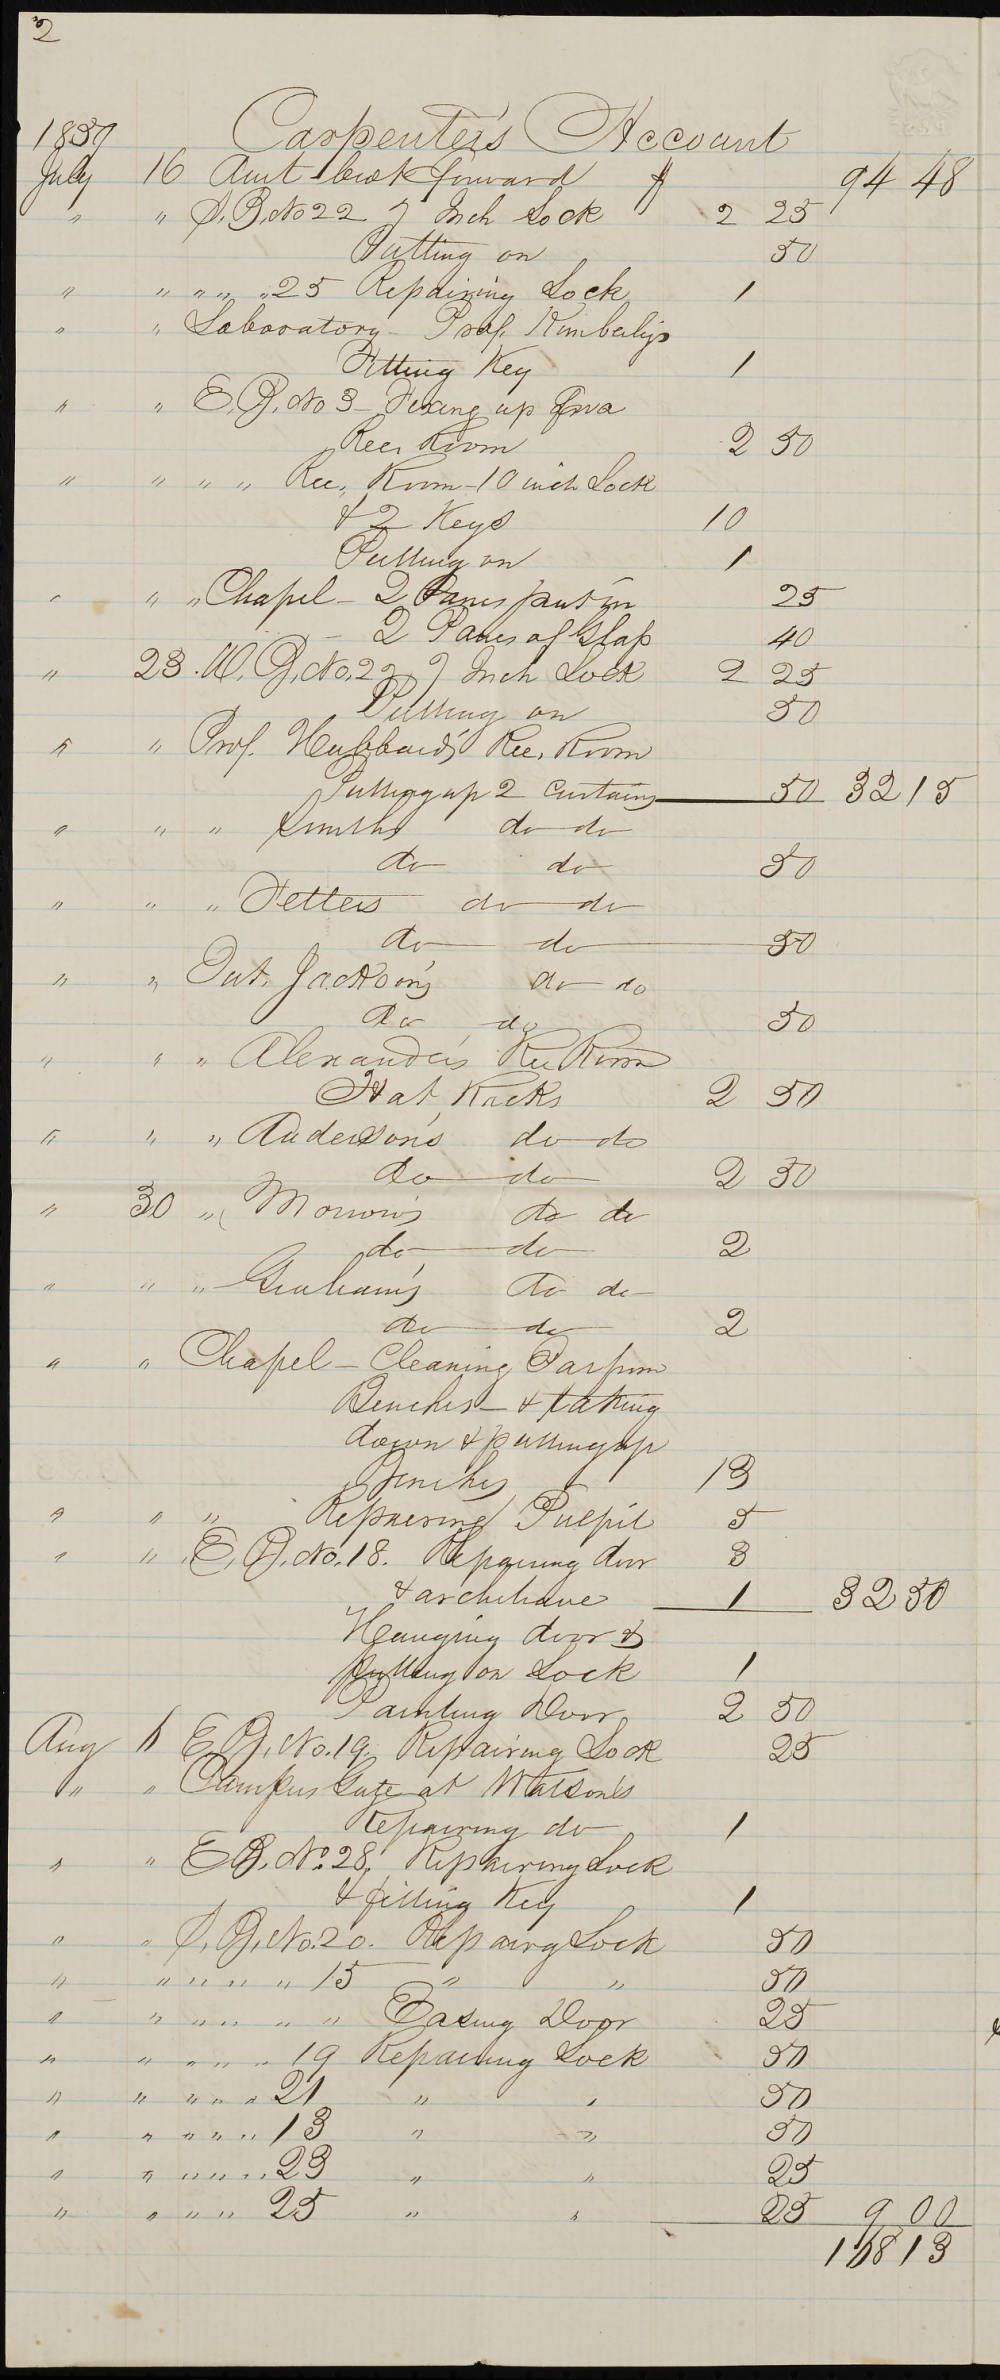 2
Carpenter's Account
1857
July 16 Amt brot forward $ 94 48
" " S. B, No 22 7 Inch Lock 2 25
Putting on 50
" " " " " 25 Repairing Lock 1
" " Laboratory - Prof. Kimberly's
Fitting Key 1
" " E. B, No 3 - Fixing up for a
Rec. Room 2 50
" " " " Rec. Room - 10 inch Lock
& 2 Keys 10
Putting on 1
" " " Chapel - 2 Panes put in 25
- 2 Panes of Glass 40
" 23. W. B, No. 22 7 Inch Lock 2 25
Putting on 50
" " Prof. Hubbard's Rec. Room
Putting up 2 Curtains 50 32 15
" " " Smith's do do
do do 50
" " " Fetters do do
do do 50
" " Tut. Jackson's do do
do do 50
" " " Alexander's Rec Room
Hat Racks 2 50
" " " Anderson's do do
do do 2 50
" 30 " Morrow's do do
do do 2
" " " Graham's do do
do do 2
" " Chapel - Cleaning Tar from
Benches - & taking
down & putting up
Benches 13
" " " Repairing Pulpit 5
" " E. B. No. 18. Repairing door 3
& architrave 1 32 50
Hanging door &
putting on Lock 1
Painting Door 2 50
Aug 6 E. B. No. 19. Repairing Lock 25
" " Campus Gate at Watson's
Repairing do 1
" " E B. No. 28, Repairing Lock
& fitting Key 1
" " S. B, No. 20. Repairg Lock 50
" " " " " " 15 " " 50
" " " " " " " Easing Door 25
" " " " " " 19 Repairing Lock 50
" " " " " " 21 " " 50
" " " " " " 13 " " 50
" " " " " " 23 " " 25
" " " " " 25 " " 25 9 00
168 13